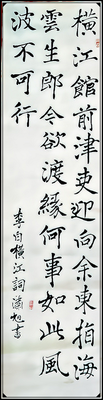 橫江館前津吏迎向余東指海
雲生郎今欲渡緣何事如此風
波不可行
李白橫江詞書